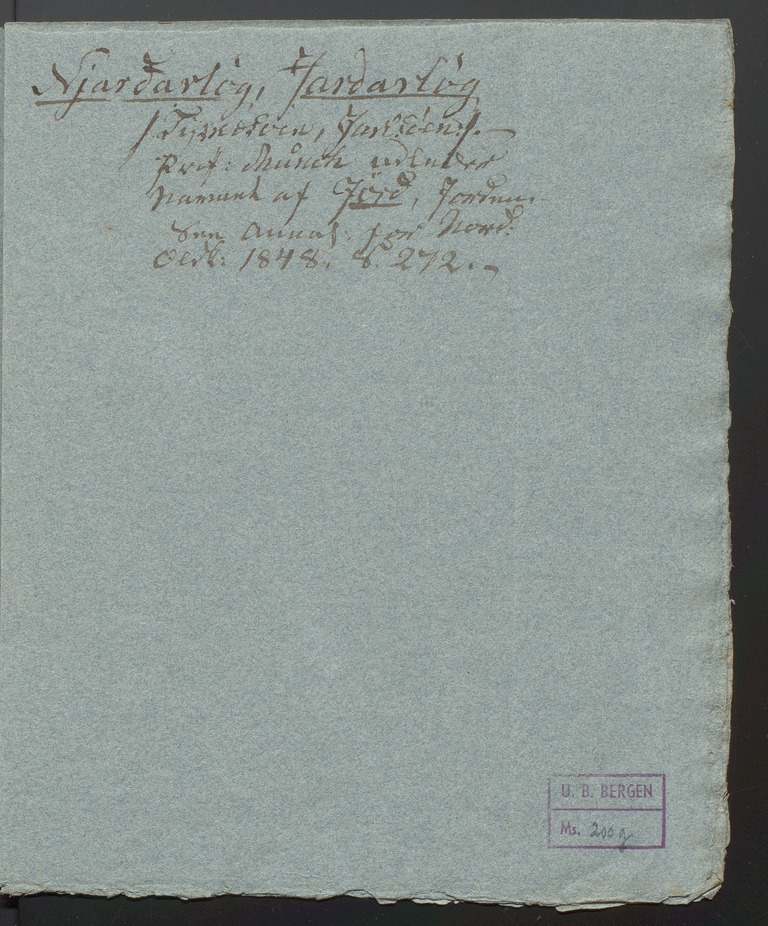 Njarðarlög, Jarðarlög
/: Tysnesöen, Jarlsöen :/. –
Prof: Munch udleder
Navnet af Jörd, Jorden.
See Annal: for Nord:
Oldk: 1848. S. 272. –
U. B. BERGEN
Ms. 200 g